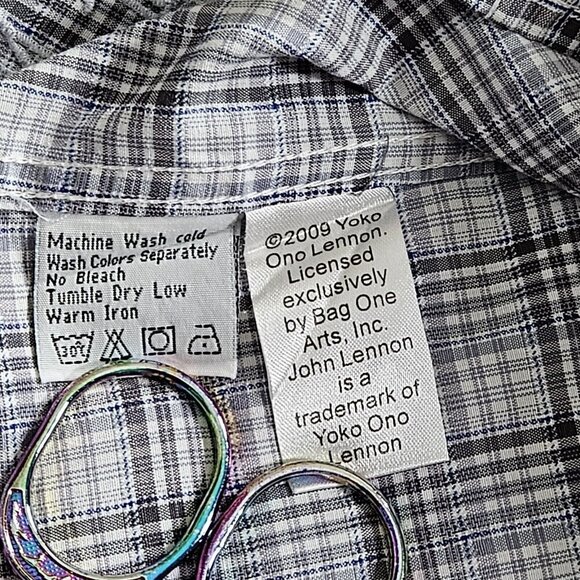 Machine Wash cold
Wash Colors Separately
No Bleach
Tumble Dry Low
Warm Iron
30°
©2009 Yoko
Ono Lennon.
Licensed
exclusively
by Bag One
Arts, Inc.
John Lennon
is a
trademark of
Yoko Ono
Lennon